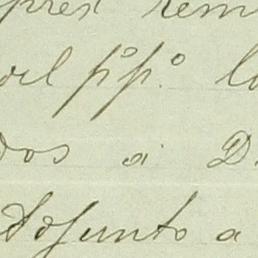 pres rem
oel p.º p.º lo
dos a D
Defunto a